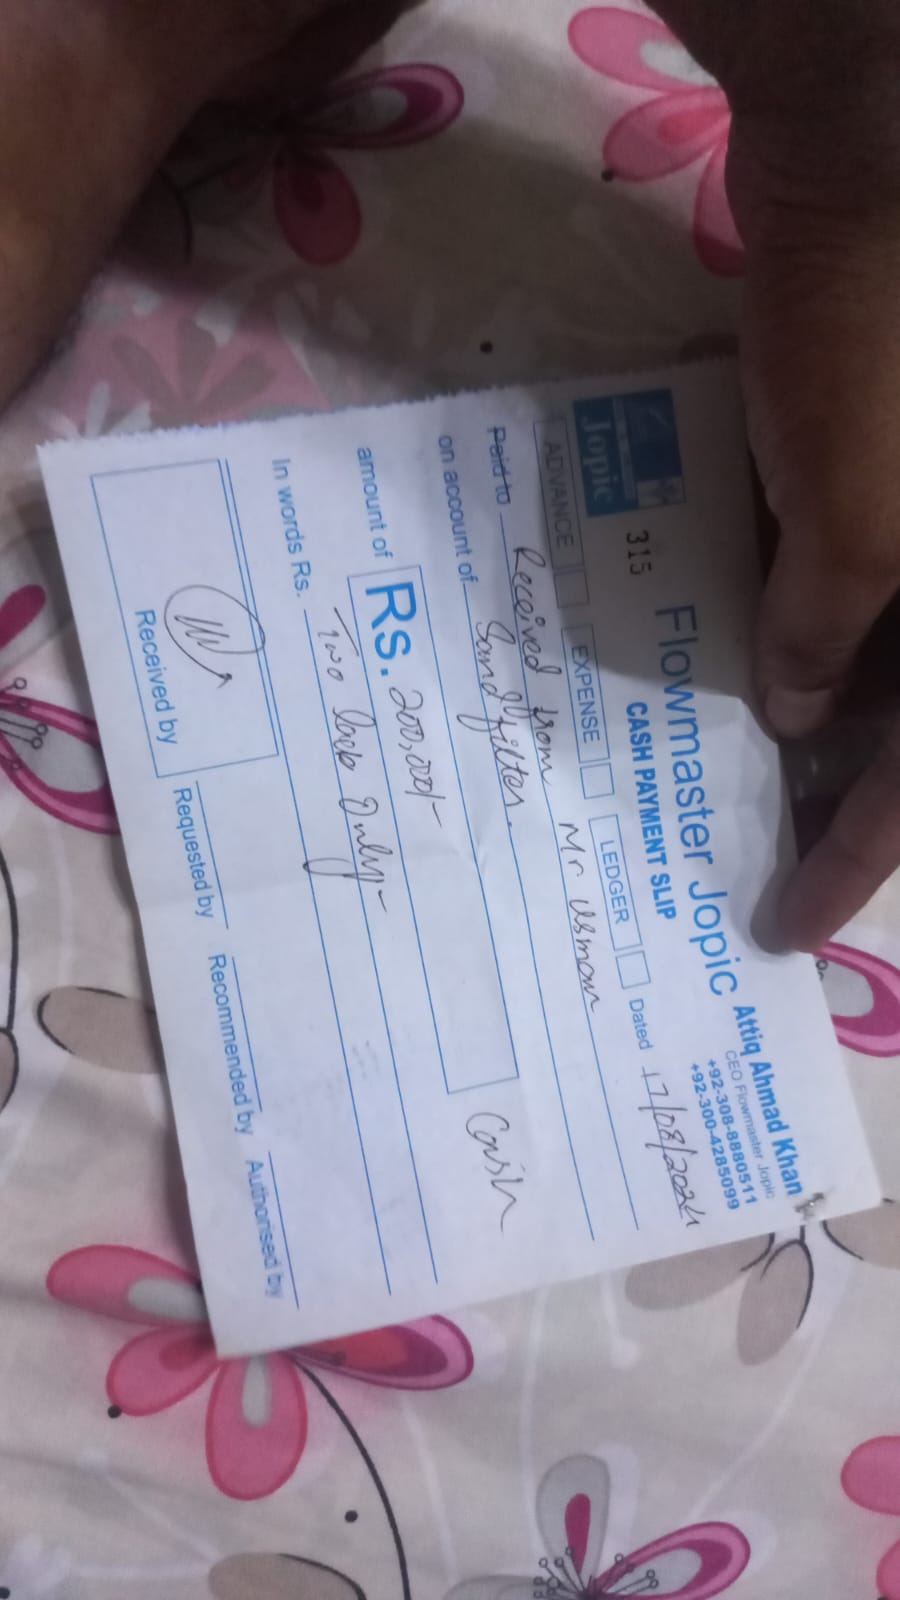 Jopic
315
Flowmaster Jopic
Attiq Ahmad Khan
CEO Flowmaster Jopic
+92-308-8880511
+92-300-4285099
CASH PAYMENT SLIP
ADVANCE EXPENSE LEDGER Dated 17/08/2024
Paid to Received from Mr Usman
on account of Sand filter.
amount of Rs. 200,000/- Cash
In words Rs. Two lack Only-
Received by Requested by Recommended by Authorised by